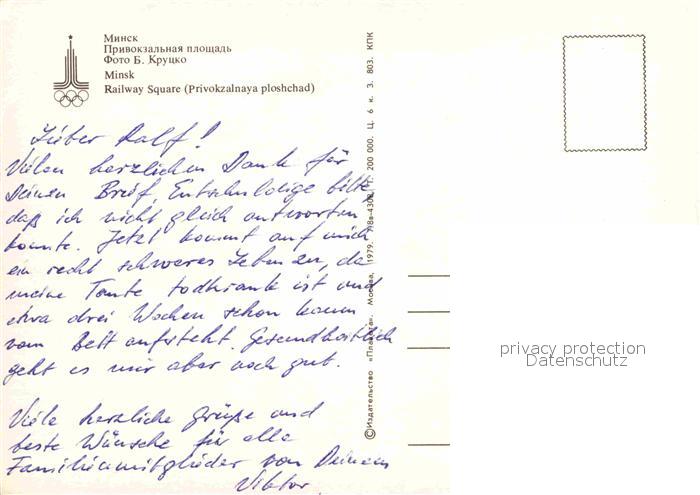 Минск
Привокзальная площадь
Фото Б. Круцко
Minsk
Railway Square (Privokzalnaya ploshchad)
Lieber Ralf!
Vielen herzlichen Dank für
Deinen Brief. Entschuldige bitte,
daß ich nicht gleich antworten
konnte. Jetzt kommt auf mich
ein recht schweres Leben zu, da
meine Tante todkrank ist und
etwa drei Wochen schon kaum
vom Bett aufsteht. Gesundheitlich
geht es mir aber noch gut.
Viele herzliche Grüße und
beste Wünsche für alle
Familienmitglieder von Deinem
Viktor.
©Издательство «Плакат». Москва, 1979. 200 000. Ц. 6 к. З. 803. КПК
privacy protection
Datenschutz